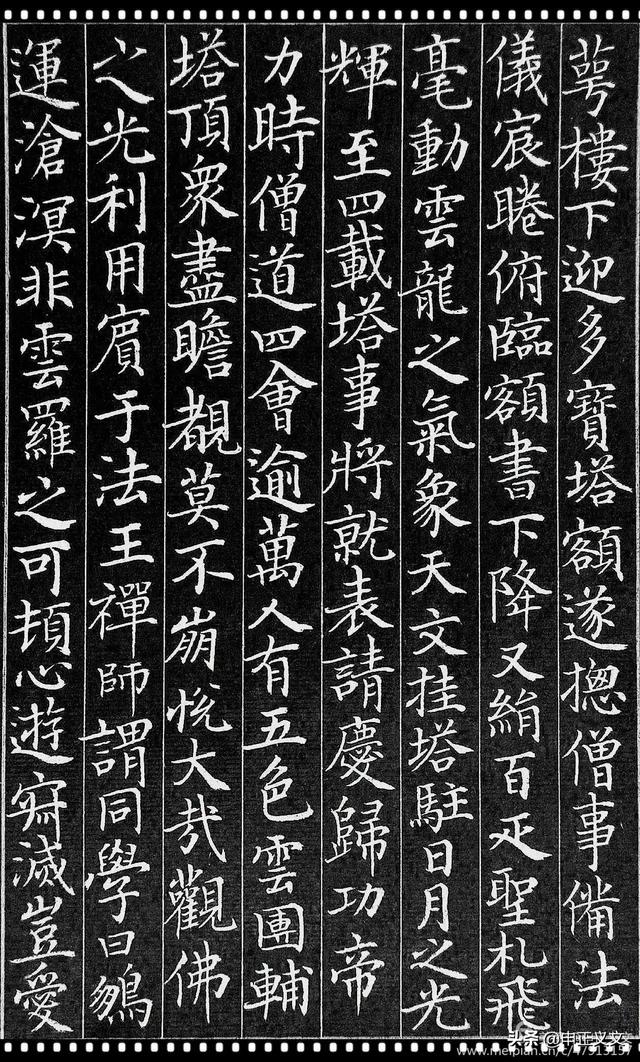 萼樓下迎多寶塔額遂摠僧事備法
儀宸睠俯臨額書下降又絹百疋聖札飛
毫動雲龍之氣象天文挂塔駐日月之光
輝至四載塔事將就表請慶歸功帝
力時僧道四會逾萬人有五色雲團輔
塔頂衆盡瞻覩莫不崩悅大哉觀佛
之光利用賓于法王禪師謂同學曰鵬
運滄溟非雲羅之可頓心遊寂滅豈愛